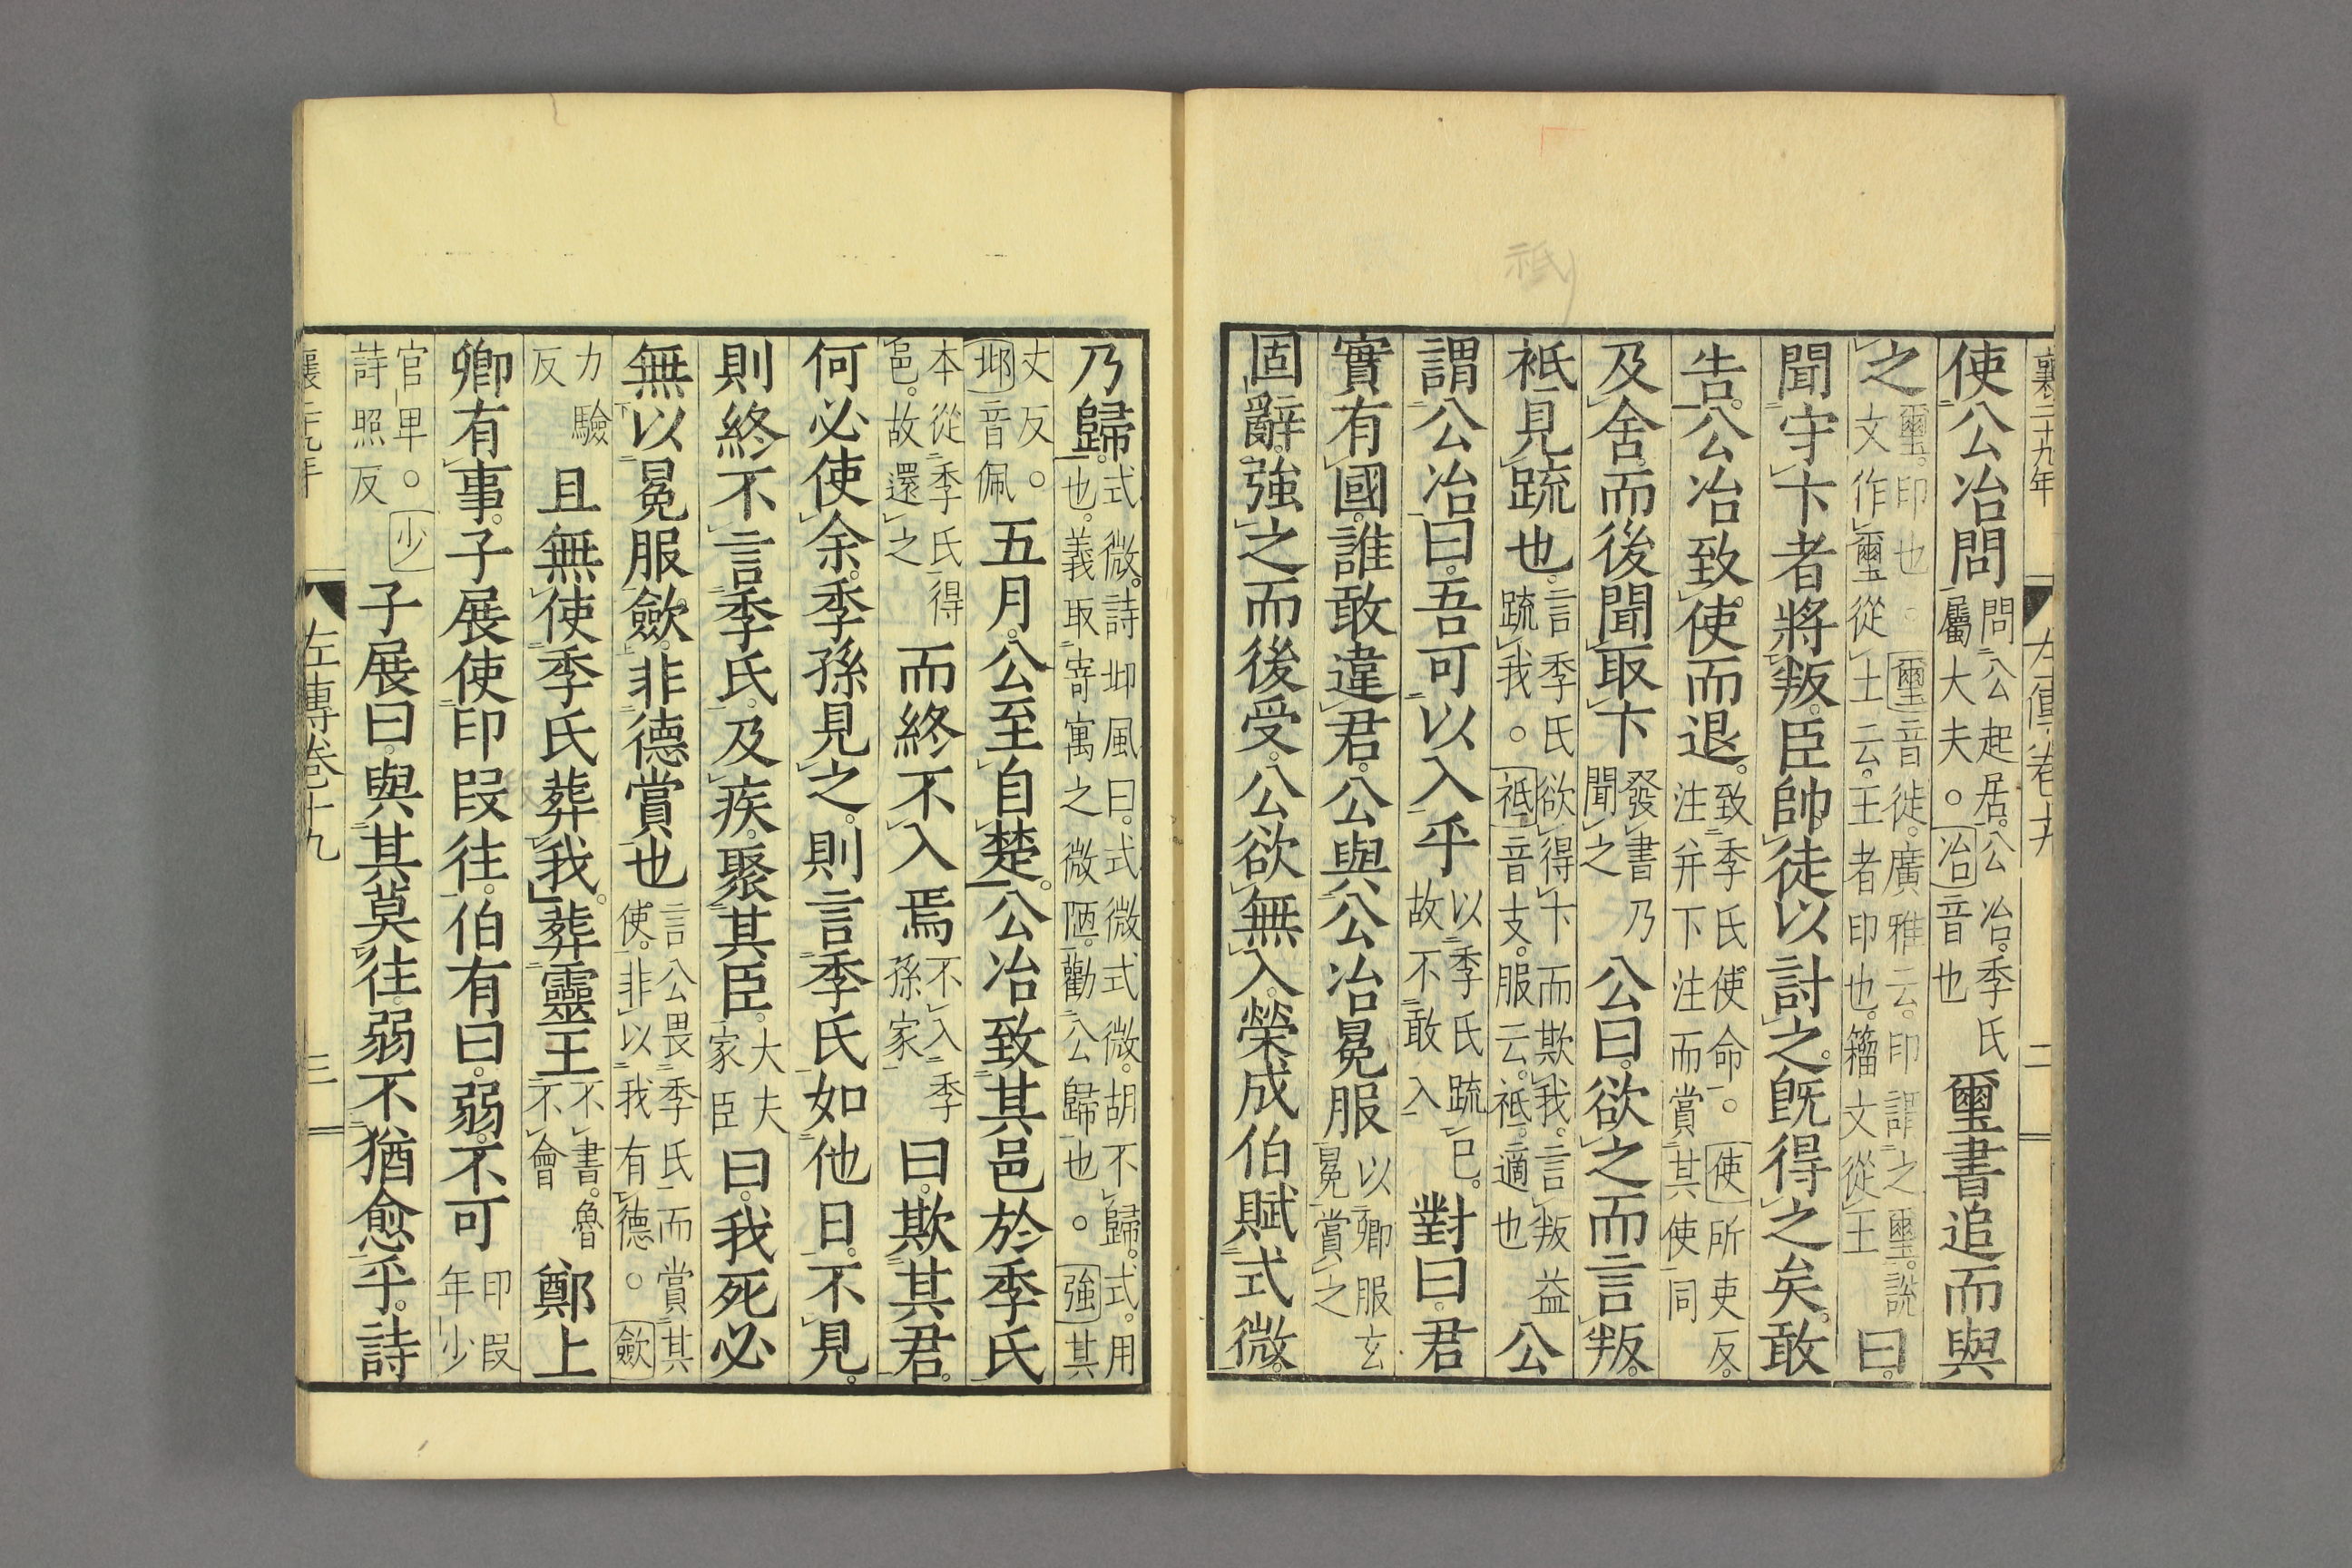 襄二十九年 左傳卷十九 二
使公冶問問公起居公冶季氏屬大夫○冶音也璽書追而與
之璽印也○璽音徙廣雅云印謂之璽說文作璽從土云王者印也籀文從王曰
聞守卞者將叛臣帥徒以討之既得之矣敢
告公冶致使而退致季氏使命○使所吏反注并下注而賞其使同
及舍而後聞取卞發書乃聞之公曰欲之而言叛
祗見疏也言季氏欲得卞而欺我言叛益疏我○祗音支服云祗適也公
謂公冶曰吾可以入乎以季氏疏已故不敢入對曰君
實有國誰敢違君公與公冶冕服以卿服玄冕賞之
固辭強之而後受公欲無入榮成伯賦式微
乃歸式微詩邶風曰式微式微胡不歸式用也義取寄寓之微陋勸公歸也○強其
丈反○邶音佩五月公至自楚公冶致其邑於季氏
本從季氏得邑故還之而終不入焉不入季孫家曰欺其君
何必使余季孫見之則言季氏如他日不見
則終不言季氏及疾聚其臣大夫家臣曰我死必
無以冕服歛非德賞也言公畏季氏而賞其使非以我有德○歛
力驗反且無使季氏葬我葬靈王不書魯不會鄭上
卿有事子展使印段往伯有曰弱不可印段年少
官卑○少詩照反子展曰與其莫往弱不猶愈乎詩
襄二十九年 左傳卷十九 三